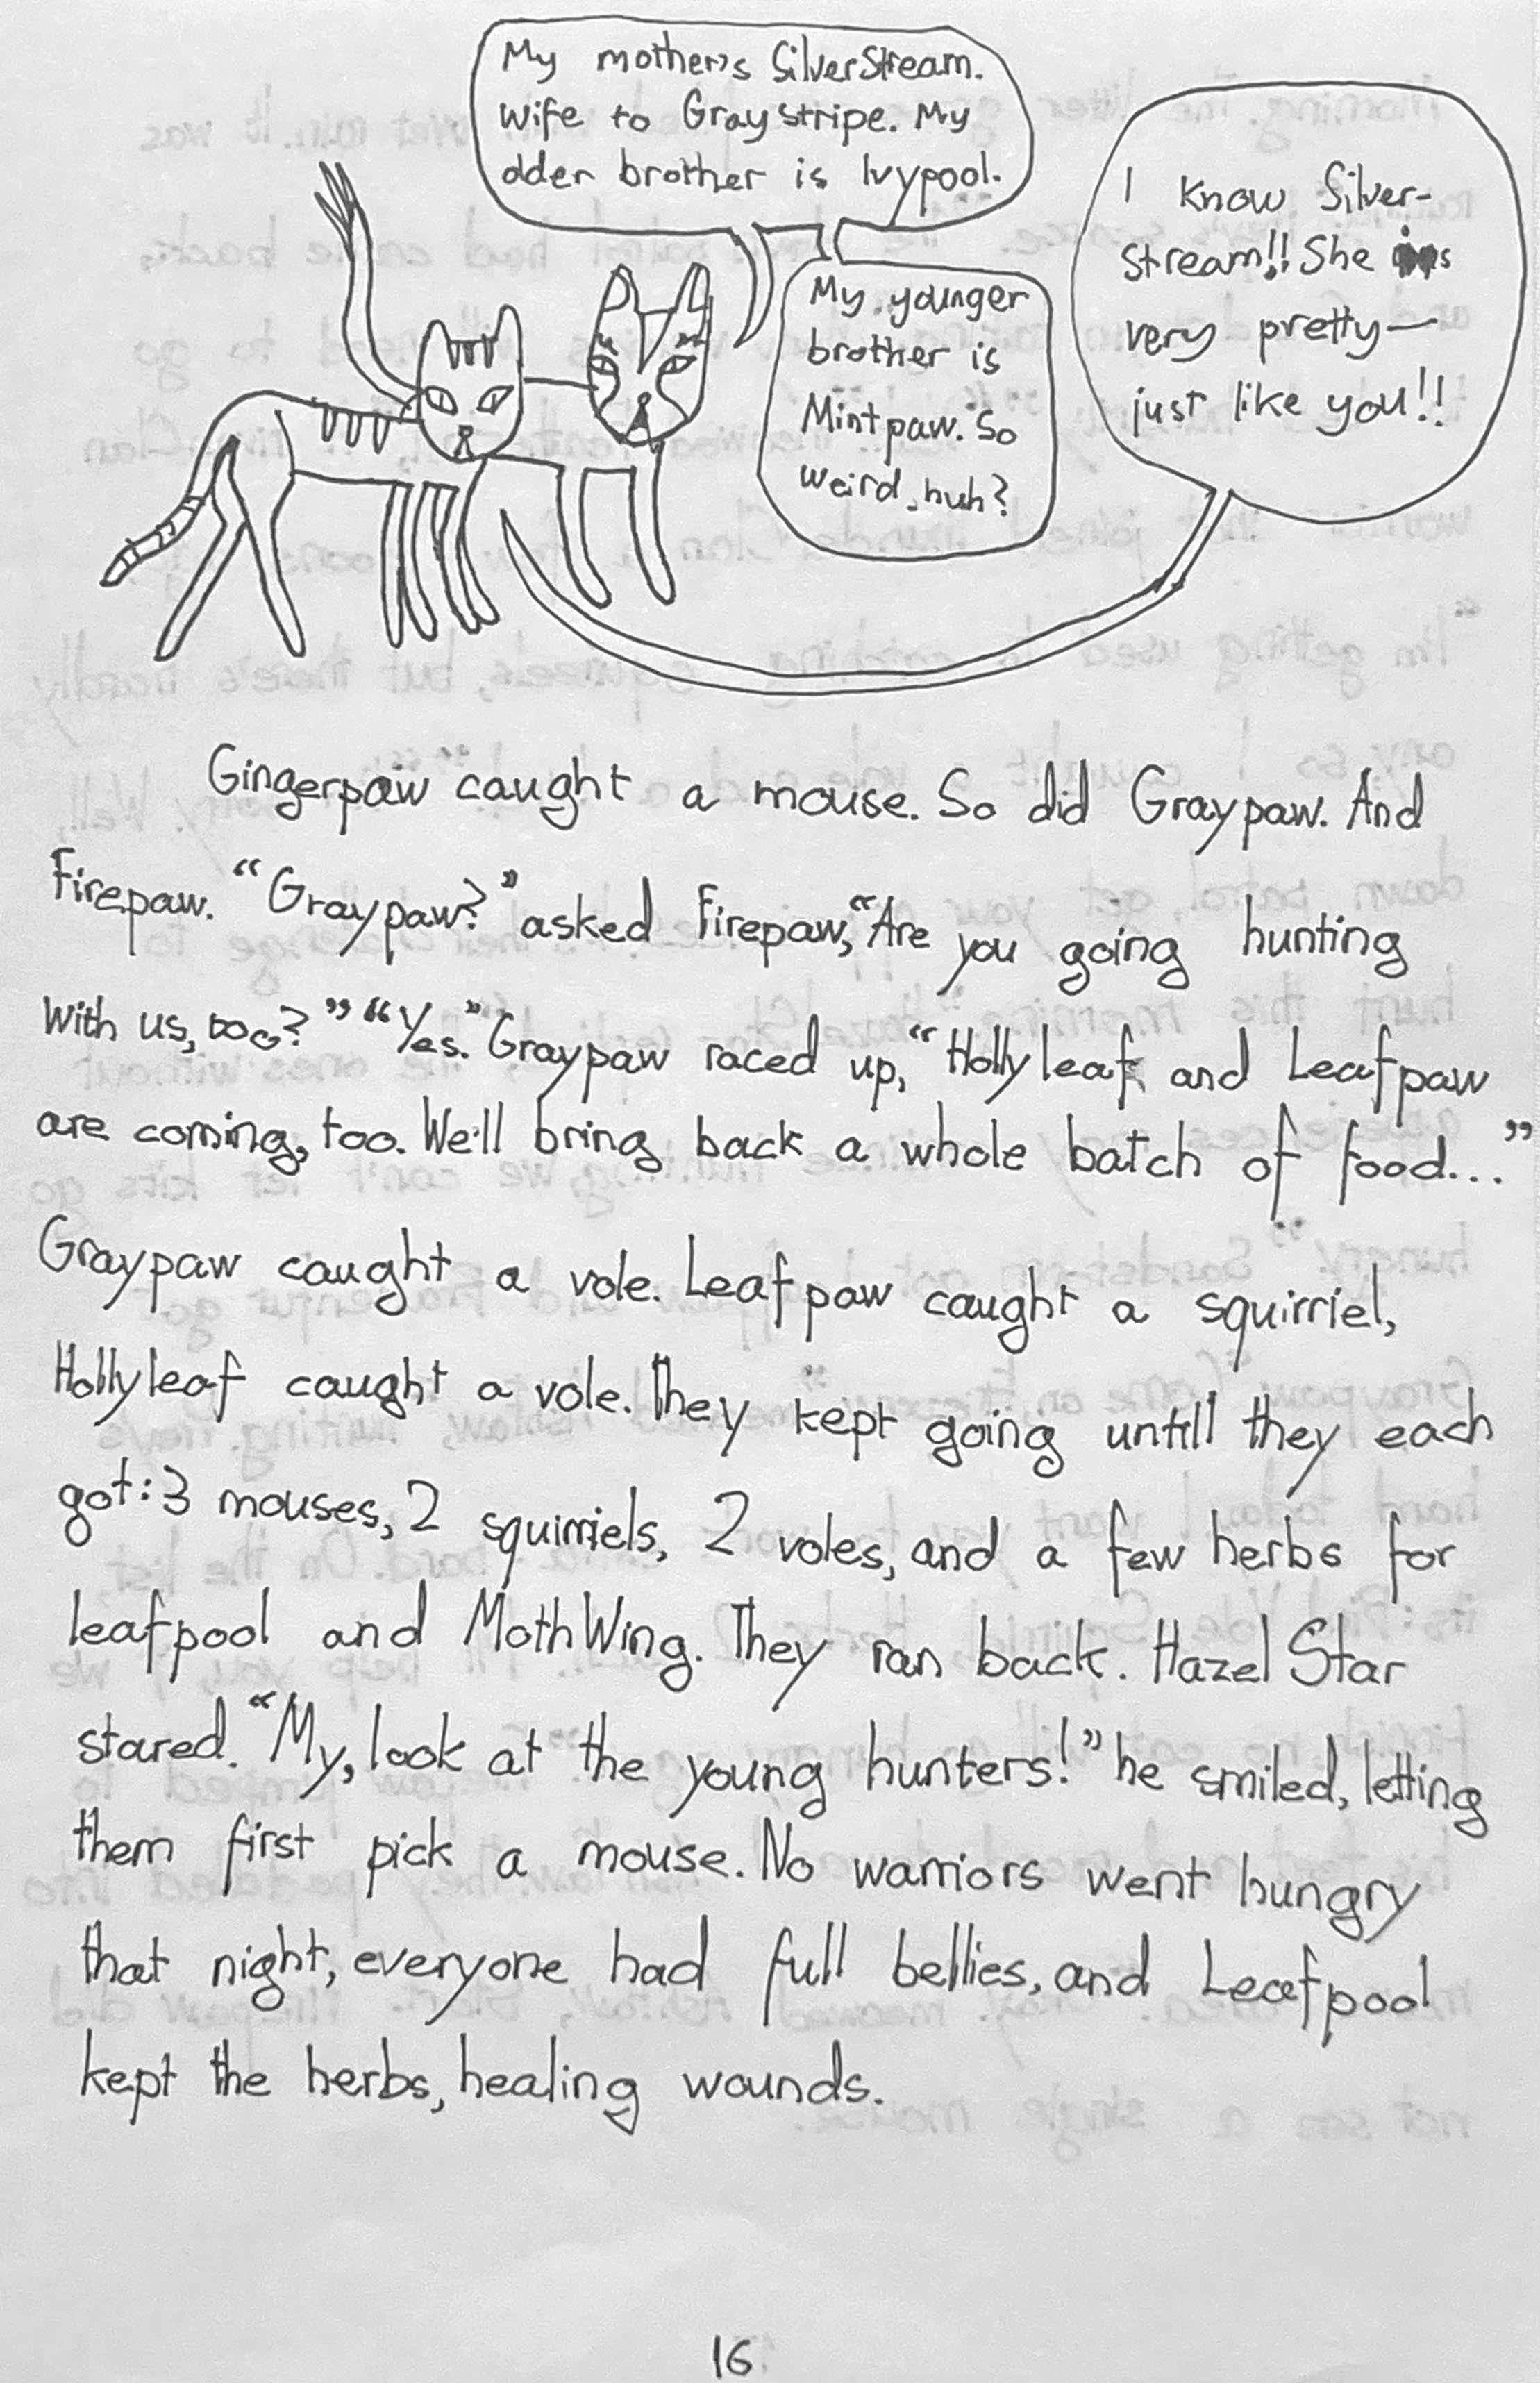 My mother's SilverStream.
Wife to Graystripe. My
older brother is Ivypool.
My younger
brother is
Mintpaw. So
weird, huh?
I know Silver-
stream!! She is
very pretty—
just like you!!
Gingerpaw caught a mouse. So did Graypaw. And
Firepaw. “Graypaw?” asked Firepaw, “Are you going hunting
with us, too?” “Yes.” Graypaw raced up, “Hollyleaf and Leafpaw
are coming, too. We'll bring back a whole batch of food...”
Graypaw caught a vole. Leafpaw caught a squirriel,
Hollyleaf caught a vole. They kept going untill they each
got: 3 mouses, 2 squirriels, 2 voles, and a few herbs for
leafpool and MothWing. They ran back. Hazel Star
stared. “My, look at the young hunters!” he smiled, letting
them first pick a mouse. No warriors went hungry
that night, everyone had full bellies, and Leafpool
kept the herbs, healing wounds.
16